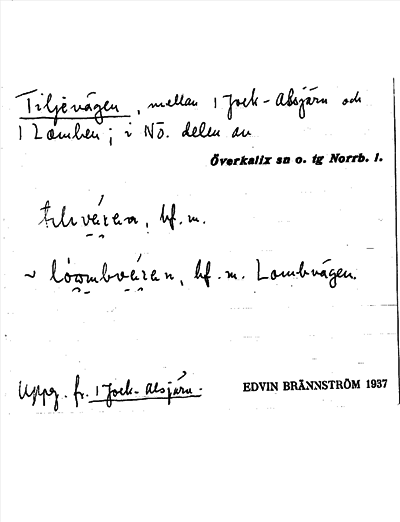 Tiljevägen, mellan 1 Jock-Alsjärn och
1 Lomben; i NÖ. delen av
Överkalix sn o. tg Norrb. l.
hf. m.
~ hf. m. Lombvägen.
Uppg. fr. 1 Jock-Alsjärn.
EDVIN BRÄNNSTRÖM 1937